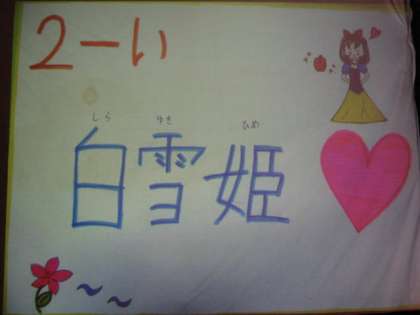 2-い
しら ゆき ひめ
白雪姫